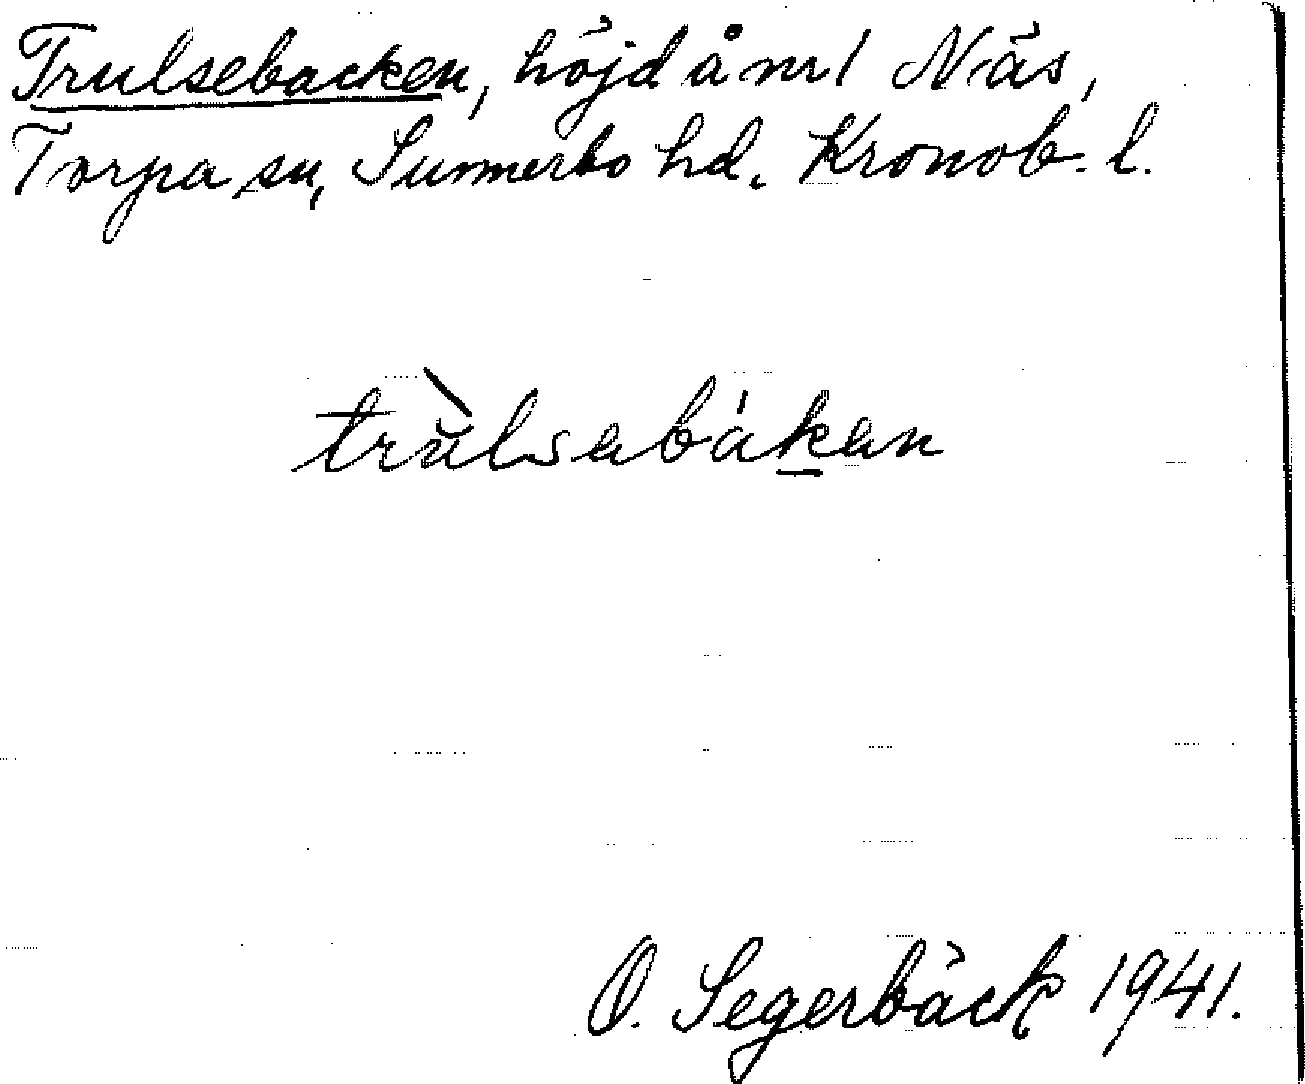 Trulsebacken, höjd å nr 1 Näs,
Torpa sn, Sunnerbo hd. Kronob. l.
trùlsabákan
O. Segerbäck 1941.